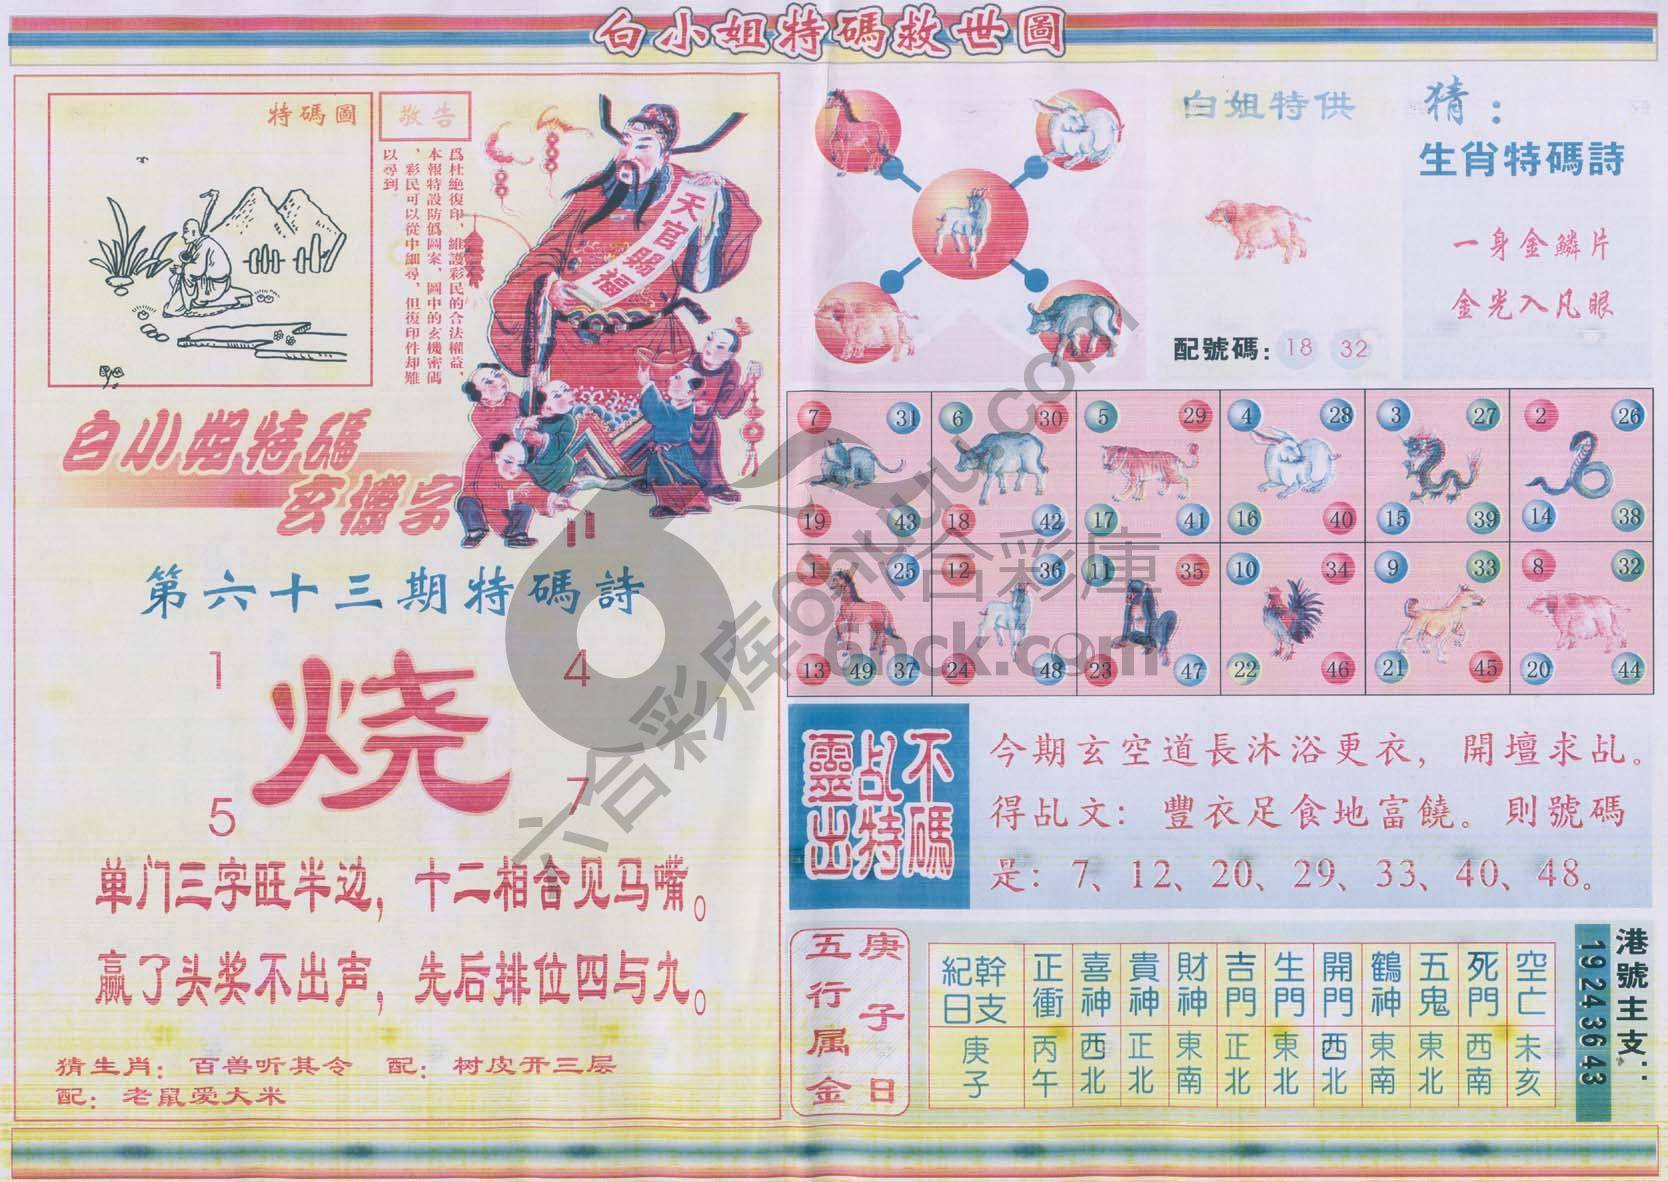 白小姐特碼救世圖
特碼圖
敬告
爲杜絶復印，維護彩民的合法權益，
本報特設防僞圖案，圖中的玄機密碼
，彩民可以從中細尋，但復印件却難
以尋到。
天官賜福
白小姐特碼
玄機字
第六十三期特碼詩
1
4
烧
5
7
单门三字旺半边，十二相合见马嘴。
赢了头奖不出声，先后排位四与九。
猜生肖：百兽听其令 配：树皮开三层
配：老鼠爱大米
白姐特供
配號碼：18 32
猜：
生肖特碼詩
一身金鱗片
金光入凡眼
7 31 6 30 5 29 4 28 3 27 2 26
19 43 18 42 17 41 16 40 15 39 14 38
1 25 12 36 11 35 10 34 9 33 8 32
13 49 37 24 48 23 47 22 46 21 45 20 44
不碼
乩特
靈出
今期玄空道長沐浴更衣，開壇求乩。
得乩文：豐衣足食地富饒。則號碼
是：7、12、20、29、33、40、48。
庚子日
五行属金
幹支紀日 正衝 喜神 貴神 財神 吉門 生門 開門 鶴神 五鬼 死門 空亡
庚子 丙午 西北 正北 東南 正北 東北 西北 東南 東北 西南 未亥
港號主支：
19 24 36 43
六合彩库
六合彩庫
6hck.com